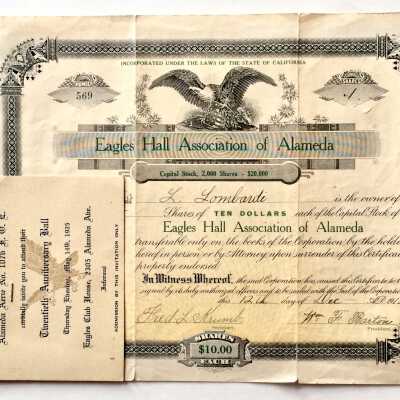 INCORPORATED UNDER THE LAWS OF THE STATE OF CALIFORNIA
569
1
Eagles Hall Association of Alameda
Capital Stock, 2,000 Shares - $20,000
L. Lombardi is the owner of
Shares of TEN DOLLARS each of the Capital Stock of
Eagles Hall Association of Alameda
transferable only on the books of the Corporation by the holder
hereof in person or by Attorney upon surrender of this Certificate
properly endorsed.
In Witness Whereof, the said Corporation has caused this Certificate to be
signed by its duly authorized officers and to be sealed with the Seal of the Corporation
this 12th day of Dec A.D. 191
Fred L. Krumb
President
SHARES
$10.00
EACH
Alameda Aerie No. 1076 F. O. E.
cordially invite you to attend their
Twentieth Anniversary Ball
Thursday Evening, May 14th, 1925
Eagles Club House, 2305 Alameda Ave.
Informal
ADMISSION BY THIS INVITATION ONLY